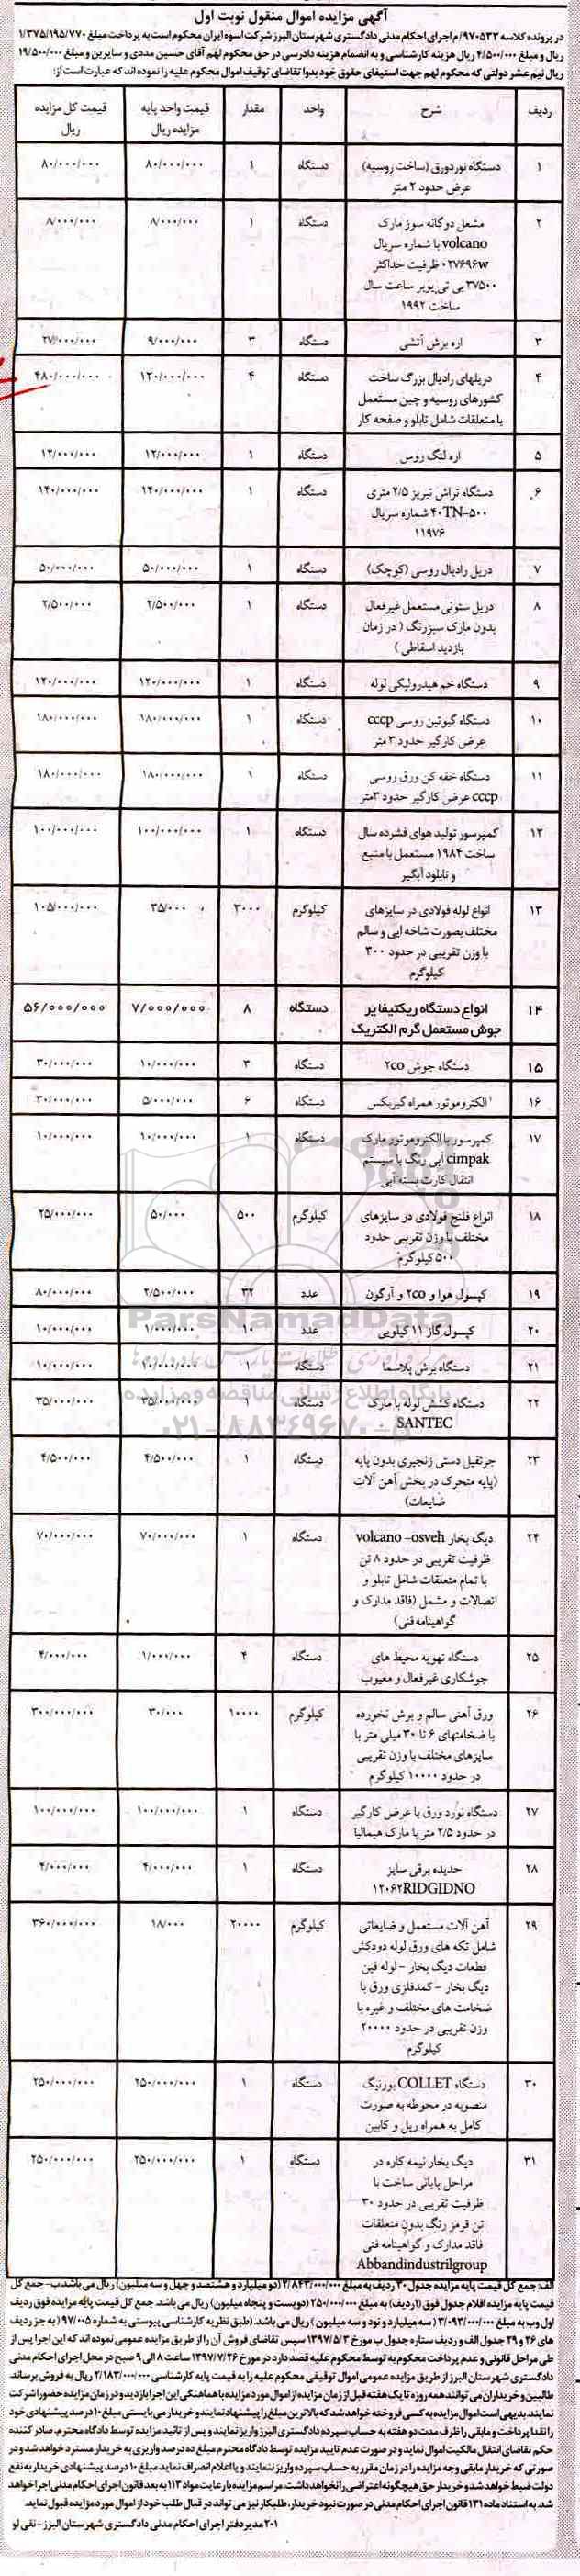 آگهی مزایده اموال منقول نوبت اول
در پرونده کلاسه ۹۷۰۵۳۳/م اجرای احکام مدنی دادگستری شهرستان البرز شرکت اسوه ایران محکوم است به پرداخت مبلغ ۱/۳۷۵/۱۹۵/۷۷۰
ریال و مبلغ ۴/۵۰۰/۰۰۰ ریال هزینه کارشناسی و به انضمام هزینه دادرسی در حق محکوم لهم آقای حسین مددی و سایرین و مبلغ ۱۹/۵۰۰/۰۰۰
ریال نیم عشر دولتی که محکوم لهم جهت استیفای حقوق خود بدوا تقاضای توقیف اموال محکوم علیه را نموده اند که عبارت است از:
ردیف شرح واحد مقدار قیمت واحد پایه قیمت کل مزایده
مزایده ریال ریال
۱ دستگاه نورد ورق (ساخت روسیه) دستگاه ۱ ۸۰/۰۰۰/۰۰۰ ۸۰/۰۰۰/۰۰۰
عرض حدود ۲ متر
۲ مشعل دوگانه سوز مارک دستگاه ۱ ۸/۰۰۰/۰۰۰ ۸/۰۰۰/۰۰۰
volcano با شماره سریال
۰۲۷۶۹۶w ظرفیت حداکثر
۳۷۵۰۰ بی تی یوبر ساعت سال
ساخت ۱۹۹۲
۳ اره برش آتشی دستگاه ۳ ۹/۰۰۰/۰۰۰ ۲۷/۰۰۰/۰۰۰
۴ دریلهای رادیال بزرگ ساخت دستگاه ۴ ۱۲۰/۰۰۰/۰۰۰ ۴۸۰/۰۰۰/۰۰۰
کشورهای روسیه و چین مستعمل
با متعلقات شامل تابلو و صفحه کار
۵ اره لنگ روس دستگاه ۱ ۱۲/۰۰۰/۰۰۰ ۱۲/۰۰۰/۰۰۰
۶ دستگاه تراش تبریز ۲/۵ متری دستگاه ۱ ۱۴۰/۰۰۰/۰۰۰ ۱۴۰/۰۰۰/۰۰۰
۴۰TN-۵۰۰ شماره سریال
۱۱۹۷۶
۷ دریل رادیال روسی (کوچک) دستگاه ۱ ۵۰/۰۰۰/۰۰۰ ۵۰/۰۰۰/۰۰۰
۸ دریل ستونی مستعمل غیرفعال دستگاه ۱ ۲/۵۰۰/۰۰۰ ۲/۵۰۰/۰۰۰
بدون مارک سبزرنگ ( در زمان
بازدید اسقاطی )
۹ دستگاه خم هیدرولیکی لوله دستگاه ۱ ۱۲۰/۰۰۰/۰۰۰ ۱۲۰/۰۰۰/۰۰۰
۱۰ دستگاه گیوتین روسی cccp دستگاه ۱ ۱۸۰/۰۰۰/۰۰۰ ۱۸۰/۰۰۰/۰۰۰
عرض کارگیر حدود ۳ متر
۱۱ دستگاه خفه کن ورق روسی دستگاه ۱ ۱۸۰/۰۰۰/۰۰۰ ۱۸۰/۰۰۰/۰۰۰
cccp عرض کارگیر حدود ۳متر
۱۲ کمپرسور تولید هوای فشرده سال دستگاه ۱ ۱۰۰/۰۰۰/۰۰۰ ۱۰۰/۰۰۰/۰۰۰
ساخت ۱۹۸۴ مستعمل با منبع
و تابلود آبگیر
۱۳ انواع لوله فولادی در سایزهای کیلوگرم ۳۰۰۰ ۳۵/۰۰۰ ۱۰۵/۰۰۰/۰۰۰
مختلف بصورت شاخه ایی و سالم
با وزن تقریبی در حدود ۳۰۰
کیلوگرم
۱۴ انواع دستگاه ریکتیفایر دستگاه ۸ ۷/۰۰۰/۰۰۰ ۵۶/۰۰۰/۰۰۰
جوش مستعمل گرم الکتریک
۱۵ دستگاه جوش ۲co دستگاه ۳ ۱۰/۰۰۰/۰۰۰ ۳۰/۰۰۰/۰۰۰
۱۶ الکتروموتور همراه گیربکس دستگاه ۶ ۵/۰۰۰/۰۰۰ ۳۰/۰۰۰/۰۰۰
۱۷ کمپرسور با الکتروموتور مارک دستگاه ۱ ۱۰/۰۰۰/۰۰۰ ۱۰/۰۰۰/۰۰۰
cimpak آبی رنگ با سیستم
انتقال کارت بسته آبی
۱۸ انواع فلنج فولادی در سایزهای کیلوگرم ۵۰۰ ۵۰/۰۰۰ ۲۵/۰۰۰/۰۰۰
مختلف با وزن تقریبی حدود
۵۰۰ کیلوگرم
۱۹ کپسول هوا و ۲co و آرگون عدد ۳۲ ۲/۵۰۰/۰۰۰ ۸۰/۰۰۰/۰۰۰
ParsNamadData
۲۰ کپسول گاز ۱۱ کیلویی عدد ۱۰ ۱/۰۰۰/۰۰۰ ۱۰/۰۰۰/۰۰۰
۲۱ دستگاه برش پلاسما دستگاه ۱ ۱۰/۰۰۰/۰۰۰ ۱۰/۰۰۰/۰۰۰
پایگاه اطلاع رسانی مناقصه و مزایده
۲۲ دستگاه کشش لوله با مارک دستگاه ۱ ۳۵/۰۰۰/۰۰۰ ۳۵/۰۰۰/۰۰۰
SANTEC
۰۲۱-۸۸۳۴۹۶۷۰-۵
۲۳ جرثقیل دستی زنجیری بدون پایه دستگاه ۱ ۴/۵۰۰/۰۰۰ ۴/۵۰۰/۰۰۰
(پایه متحرک در بخش آهن آلات
ضایعات)
۲۴ دیگ بخار volcano -osveh دستگاه ۱ ۷۰/۰۰۰/۰۰۰ ۷۰/۰۰۰/۰۰۰
ظرفیت تقریبی در حدود ۸ تن
با تمام متعلقات شامل تابلو و
اتصالات و مشمل (فاقد مدارک و
گواهینامه فنی)
۲۵ دستگاه تهویه محیط های دستگاه ۴ ۱/۰۰۰/۰۰۰ ۴/۰۰۰/۰۰۰
جوشکاری غیرفعال و معیوب
۲۶ ورق آهنی سالم و برش نخورده کیلوگرم ۱۰۰۰۰ ۳۰/۰۰۰ ۳۰۰/۰۰۰/۰۰۰
با ضخامتهای ۶ تا ۳۰ میلی متر با
سایزهای مختلف با وزن تقریبی
در حدود ۱۰۰۰۰ کیلوگرم
۲۷ دستگاه نورد ورق با عرض کارگیر دستگاه ۱ ۱۰۰/۰۰۰/۰۰۰ ۱۰۰/۰۰۰/۰۰۰
در حدود ۲/۵ متر با مارک هیمالیا
۲۸ حدیده برقی سایز دستگاه ۱ ۴/۰۰۰/۰۰۰ ۴/۰۰۰/۰۰۰
۱۲۰۶۲RIDGIDNO
۲۹ آهن آلات مستعمل و ضایعاتی کیلوگرم ۲۰۰۰۰ ۱۸/۰۰۰ ۳۶۰/۰۰۰/۰۰۰
شامل تکه های ورق لوله دودکش
قطعات دیگ بخار - لوله فین
دیگ بخار - کمدفلزی ورق با
ضخامت های مختلف و غیره با
وزن تقریبی در حدود ۲۰۰۰۰
کیلوگرم
۳۰ دستگاه COLLET بورنیگ دستگاه ۱ ۲۵۰/۰۰۰/۰۰۰ ۲۵۰/۰۰۰/۰۰۰
منصوبه در محوطه به صورت
کامل به همراه ریل و کابین
۳۱ دیگ بخار نیمه کاره در دستگاه ۱ ۲۵۰/۰۰۰/۰۰۰ ۲۵۰/۰۰۰/۰۰۰
مراحل پایانی ساخت با
ظرفیت تقریبی در حدود ۳۰
تن قرمز رنگ بدون متعلقات
فاقد مدارک و گواهینامه فنی
Abbandindustrilgroup
الف: جمع کل قیمت پایه مزایده جدول ۳۰ ردیف به مبلغ ۲/۸۴۳/۰۰۰/۰۰۰ (دو میلیارد و هشتصد و چهل و سه میلیون) ریال می باشد ب- جمع کل
قیمت پایه مزایده اقلام جدول فوق (۱ ردیف) به مبلغ ۲۵۰/۰۰۰/۰۰۰ (دویست و پنجاه میلیون) ریال می باشد. جمع کل قیمت پایه مزایده فوق ردیف
اول و ب به مبلغ ۳/۰۹۳/۰۰۰/۰۰۰ (سه میلیارد و نود و سه میلیون) ریال می باشد. (طبق نظریه کارشناسی پیوستی به شماره ۹۷/۰۰۵) (به جز ردیف
های ۲۶ و ۲۹ جدول الف و ردیف ستاره جدول ب مورخ ۱۳۹۷/۵/۳ سپس تقاضای فروش آن را از طریق مزایده عمومی نموده اند که این اجرا پس از
طی مراحل قانونی و عدم پرداخت محکوم به توسط محکوم علیه قصد دارد در مورخ ۱۳۹۷/۷/۲۶ ساعت ۸ الی ۹ صبح در محل اجرای احکام مدنی
دادگستری شهرستان البرز از طریق مزایده عمومی اموال توقیفی محکوم علیه را به قیمت پایه کارشناسی ۲/۱۸۳/۰۰۰/۰۰۰ ریال به فروش برساند.
طالبین و خریداران می توانند همه روزه تا یک هفته قبل از زمان مزایده از اموال مورد مزایده با هماهنگی این اجرا بازدید و در زمان مزایده حضور شرکت
نمایند. بدیهی است اموال مزایده به کسی فروخته خواهد شد که بالاترین مبلغ را پیشنهاد نمایند و خریدار می بایستی مبلغ ۱۰ درصد پیشنهادی خود
را نقدا پرداخت و مابقی را ظرف مدت دو هفته به حساب سپرده دادگستری البرز واریز نمایند و پس از تائید مزایده توسط دادگاه محترم، صادر کننده
حکم تقاضای انتقال مالکیت اموال نماید و در صورت عدم تایید مزایده توسط دادگاه محترم مبلغ ده درصد واریزی به خریدار مسترد خواهد شد و در
صورتی که خریدار مابقی وجه مزایده را در زمان مقرر به حساب سپرده واریز ننمایند و یا اعلام انصراف نماید مبلغ ۱۰ درصد پیشنهادی خریدار به نفع
دولت ضبط خواهد شد و خریدار حق هیچگونه اعتراضی را نخواهد داشت. مراسم مزایده با رعایت مواد ۱۱۳ به بعد قانون اجرای احکام مدنی اجرا خواهد
شد. به استناد ماده ۱۳۱ قانون اجرای احکام مدنی در صورت نبود خریدار، طلبکار نیز می تواند در قبال طلب خود از اموال مورد مزایده قبول نماید.
۲۰۱ مدیر دفتر اجرای احکام مدنی دادگستری شهرستان البرز - تقی لو